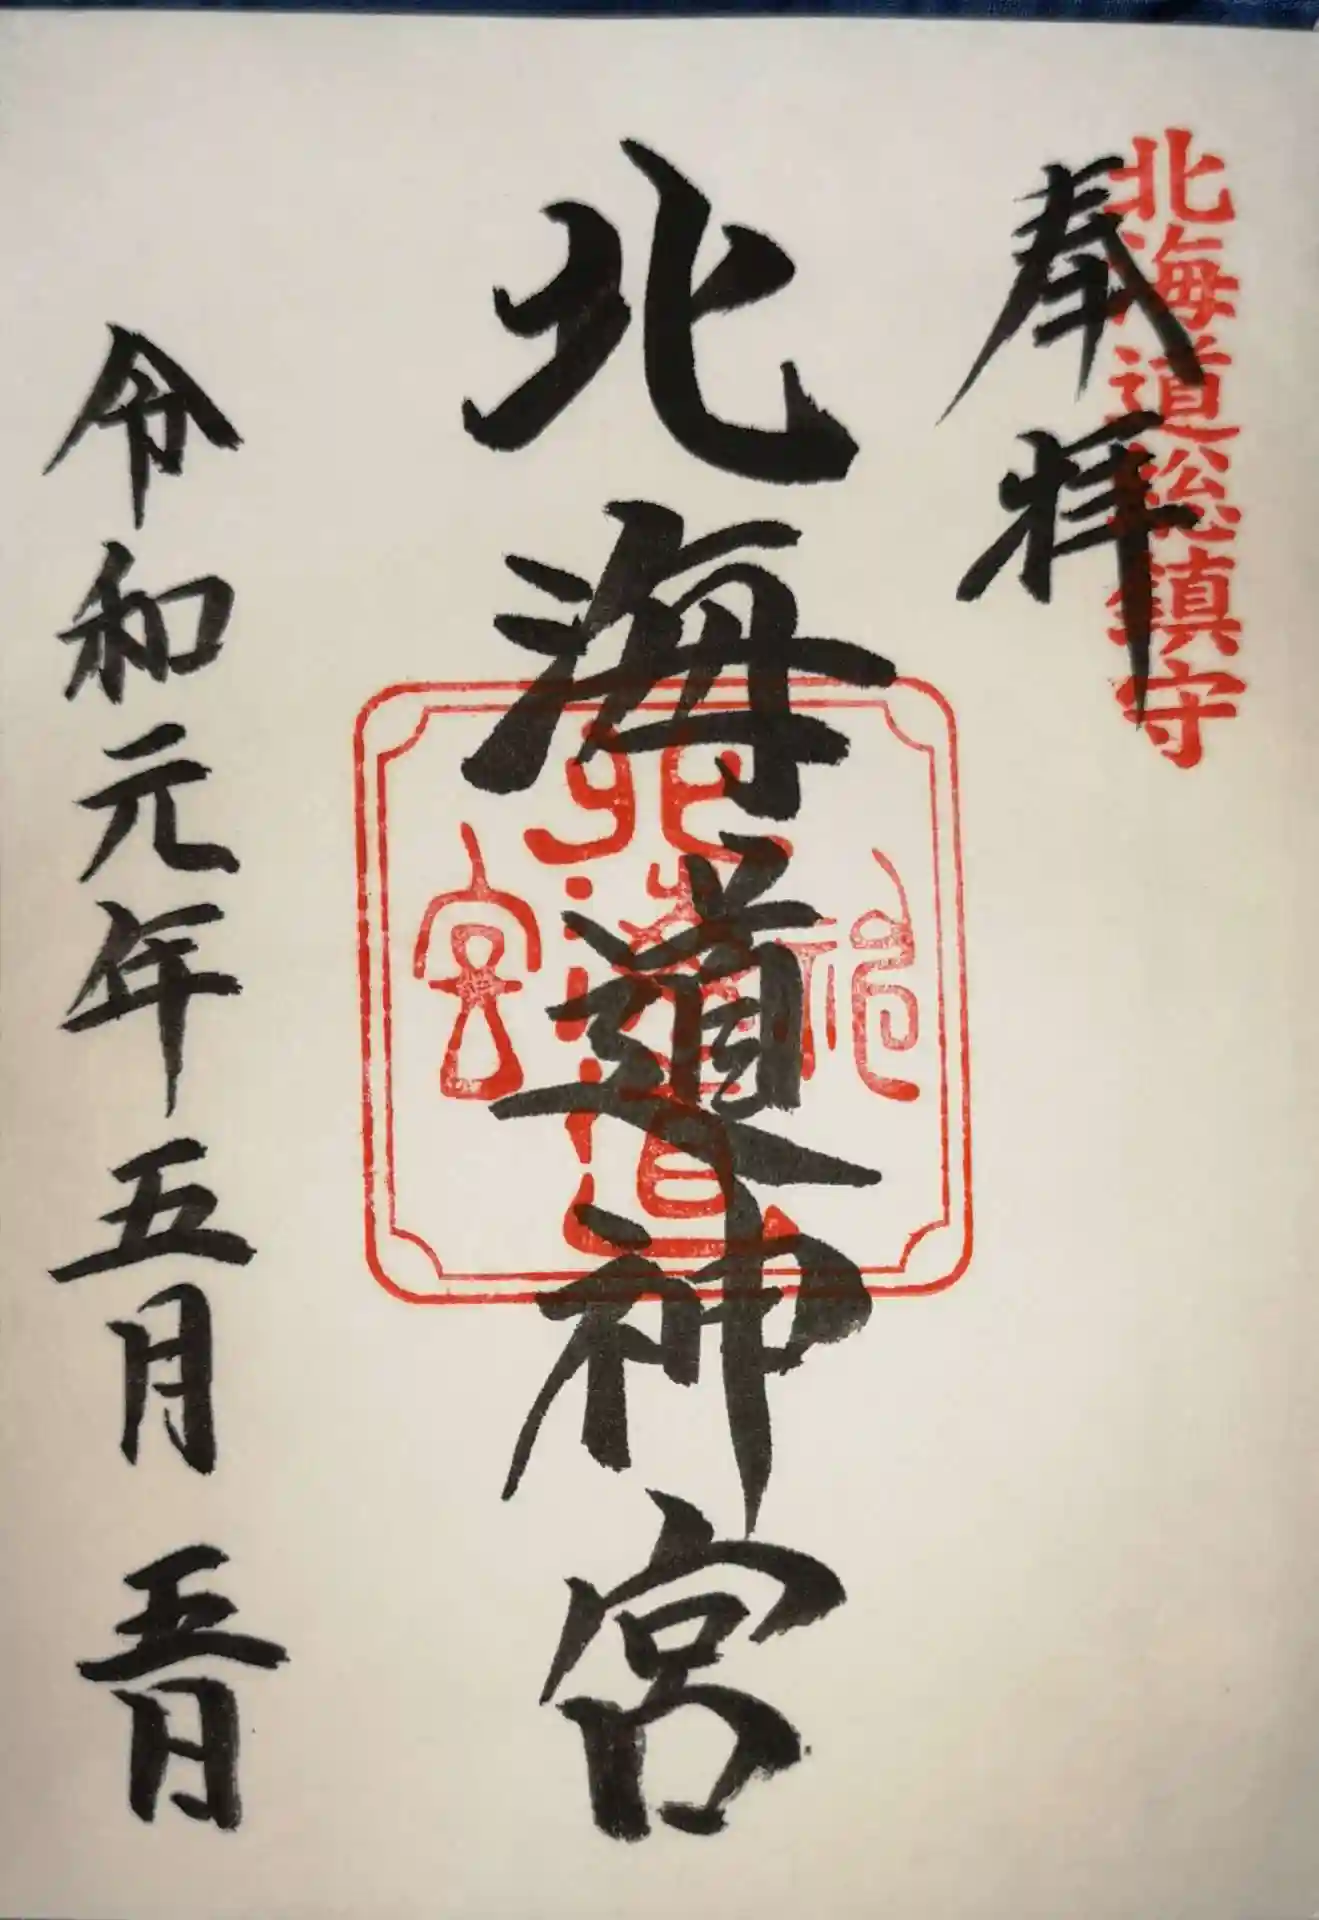 北海道総鎮守
奉拝
北海道神宮
北海道神宮
令和元年五月五日